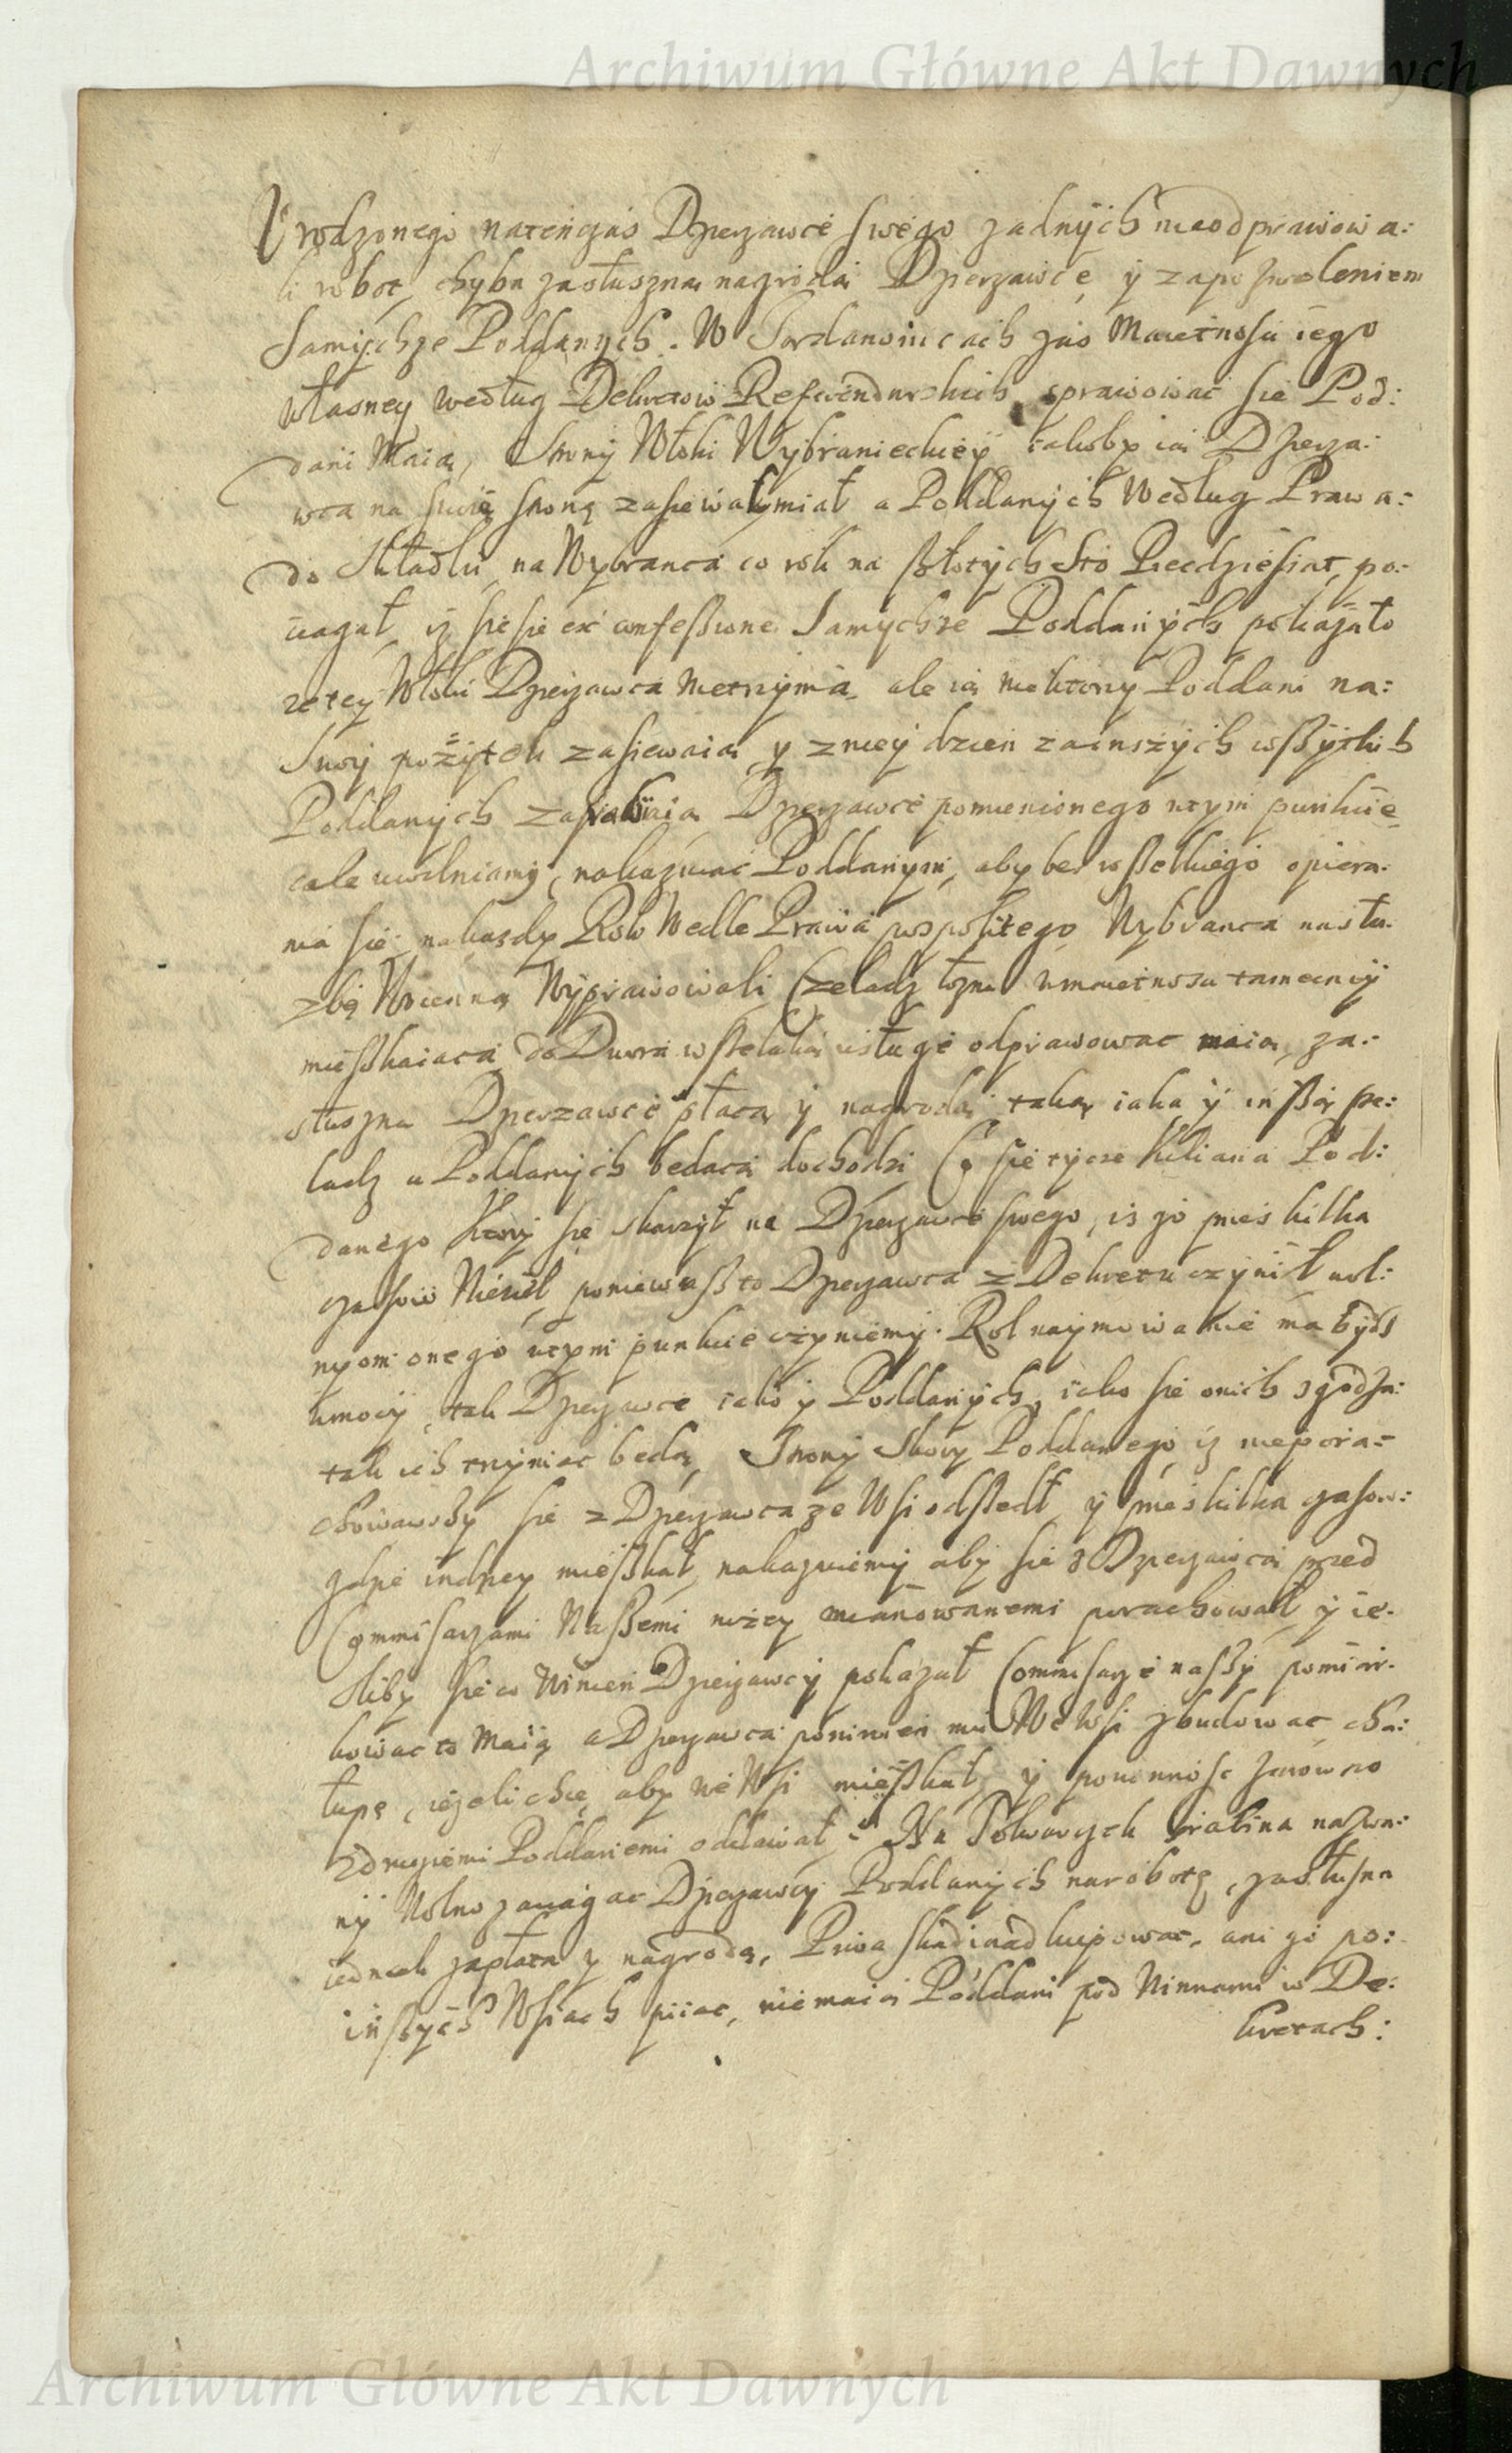 Archiwum Główne Akt Dawnych
Vrodzonego natenczas Dzerzawce swego zadnych nieodprawowa:
li robot, chyba zasłuszną nagrodą Dzerzawce y zapozwoleniem
Samychze Poddanych. W Jordanowicach zas Maietnosci iego
własney według Dekretow Referendarskich sprawowac sie Pod:
dani Maią, Strony Włoki Wybranieckiey iakoby ią Dzerza:
wca na swię stronę zasiewacz miał a Poddanych Według Prawa:
do Składku na Wybranca co rok na złotych Sto Piecdziesiat, po:
ciagał, iz sie sie ex confessione Samychze Poddanych pokazało
ze tey Włoki Dzerzawca nietrzyma, ale ią niektory Poddani na:
Swoy pożytek zasiewaią, y zniey dzien zainszych wszytkich
Poddanych zarabiaia, Dzerzawce pomienionego wtym punkcie
cale uwalniamy, nakazuiac Poddanym, aby bes wszelkiego opiera:
nia sie nakazdy Rok Wedle Prawa pospolitego Wybranca nasłu:
zbę Woienną Wyprawowali Czeladz lozna wmaietnosci tameczny
mieszkaiaca do Dwora wszelaką usługe odprawowac maia, za:
słuszna Dzerzawce płacą y nagrodą taką iaka y inszą cze:
ladz u Poddanych bedaca dochodzi Co sie tycze Kiliana Pod:
danego Ktory się skarzył na Dzerzawce swego, is go przes kilka
czasow Wiezieł, poniewasz to Dzerzawca z Dekretu czynił wol:
nym onego wtym punkcie czyniemy. Rol naymowanie ma bydz
wmocy, tak Dzerzawce iako y Poddanych, iako sie onich zgodzą:
tak ich trzymac bedą, Strony Skory Poddanego, iz nieporá:
chowawszy sie z Dzerzawca ze Wsi odszedł y przes kilka czasow:
gdzie indzey mieszkał, nakazuiemy aby sie z Dzerzawcą przed
Commisarzami Naszemi nizey mianowanemi porachował, y ie:
sliby sie co Winien Dzerzawcy pokazał Commisarze naszy pomiar:
kowac to Maią a Dzerzawca powinien mu We Wsi zbudowac cha:
łupę, iezeli chce aby we Wsi mieszkał, y powinnosc zarowno
zdrugiemi Poddanemi oddawał. Na Folwarczek Grabina nazwa:
ny Wolno zaciągac Dzerzawcy Poddanych narobotę, zasłuszna
iednak zapłata y nagrodą, Piwa skądinąd kupowac, ani go po:
inszych Wsiach piiac, niemaia Poddani pod Winnami w De:
kretach:
Archiwum Główne Akt Dawnych